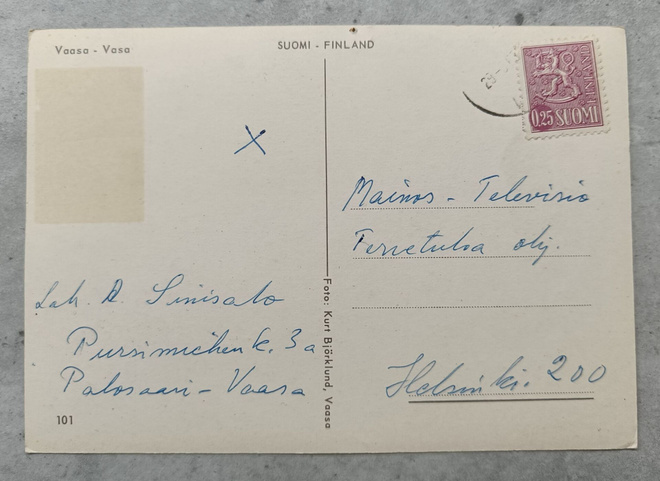 Vaasa - Vasa
SUOMI - FINLAND
0,25 SUOMI
X
Mainos - Televisio
Tervetuloa ohj.
Läh. A. Sinisalo
Pursimiehenk. 3 a
Palosaari - Vaasa
Helsinki. 200
Foto: Kurt Björklund, Vaasa
101